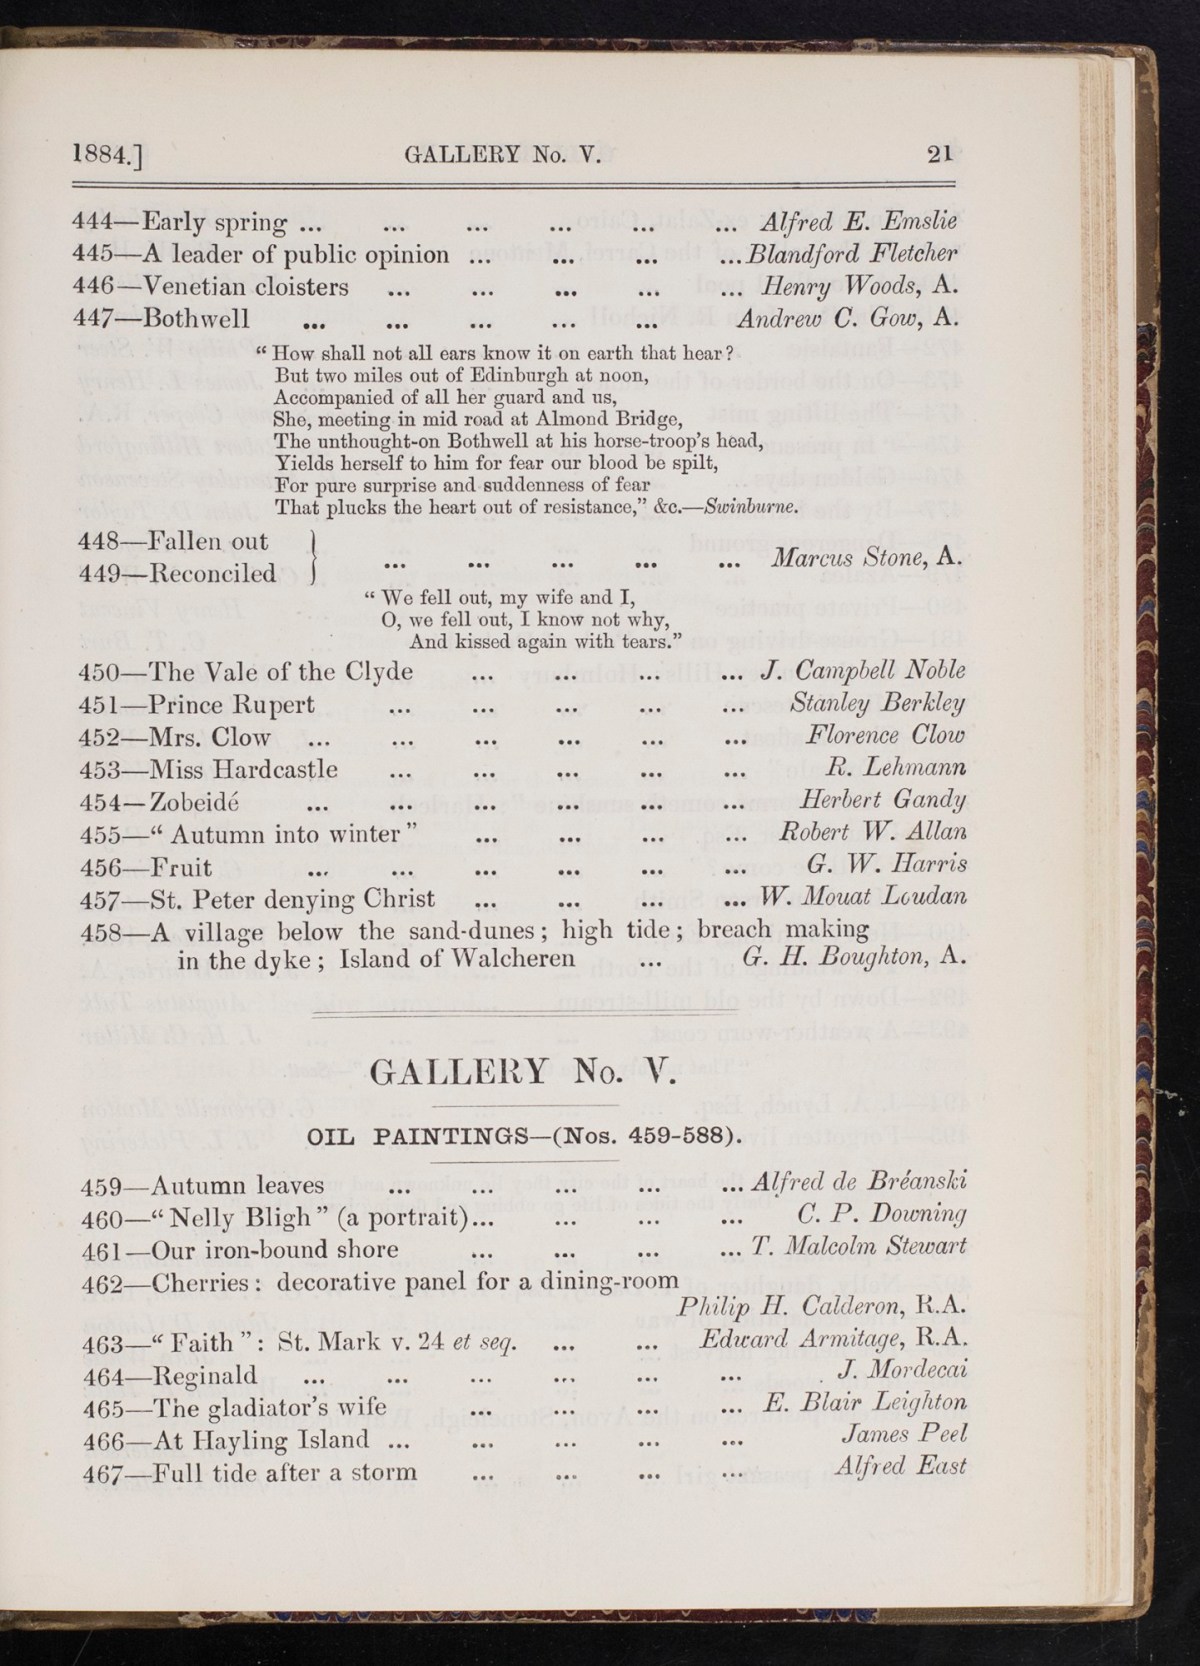 1884.] GALLERY No. V. 21
444—Early spring ... ... ... ... ... ... Alfred E. Emslie
445—A leader of public opinion ... ... ... ... Blandford Fletcher
446—Venetian cloisters ... ... ... ... ... Henry Woods, A.
447—Bothwell ... ... ... ... ... Andrew C. Gow, A.
“How shall not all ears know it on earth that hear?
But two miles out of Edinburgh at noon,
Accompanied of all her guard and us,
She, meeting in mid road at Almond Bridge,
The unthought-on Bothwell at his horse-troop’s head,
Yields herself to him for fear our blood be spilt,
For pure surprise and suddenness of fear
That plucks the heart out of resistance,” &c.—Swinburne.
448—Fallen out
449—Reconciled } ... ... ... ... ... Marcus Stone, A.
“We fell out, my wife and I,
O, we fell out, I know not why,
And kissed again with tears.”
450—The Vale of the Clyde ... ... ... ... J. Campbell Noble
451—Prince Rupert ... ... ... ... ... Stanley Berkley
452—Mrs. Clow ... ... ... ... ... ... Florence Clow
453—Miss Hardcastle ... ... ... ... ... R. Lehmann
454—Zobeidé ... ... ... ... ... ... Herbert Gandy
455—“Autumn into winter” ... ... ... ... Robert W. Allan
456—Fruit ... ... ... ... ... ... G. W. Harris
457—St. Peter denying Christ ... ... ... ... W. Mouat Loudan
458—A village below the sand-dunes; high tide; breach making
in the dyke; Island of Walcheren ... G. H. Boughton, A.
GALLERY No. V.
OIL PAINTINGS—(Nos. 459-588).
459—Autumn leaves ... ... ... ... ... Alfred de Bréanski
460—“Nelly Bligh” (a portrait)... ... ... ... C. P. Downing
461—Our iron-bound shore ... ... ... ... T. Malcolm Stewart
462—Cherries: decorative panel for a dining-room
Philip H. Calderon, R.A.
463—“Faith”: St. Mark v. 24 et seq. ... ... Edward Armitage, R.A.
464—Reginald ... ... ... ... ... ... J. Mordecai
465—The gladiator’s wife ... ... ... ... E. Blair Leighton
466—At Hayling Island ... ... ... ... ... James Peel
467—Full tide after a storm ... ... ... ... Alfred East